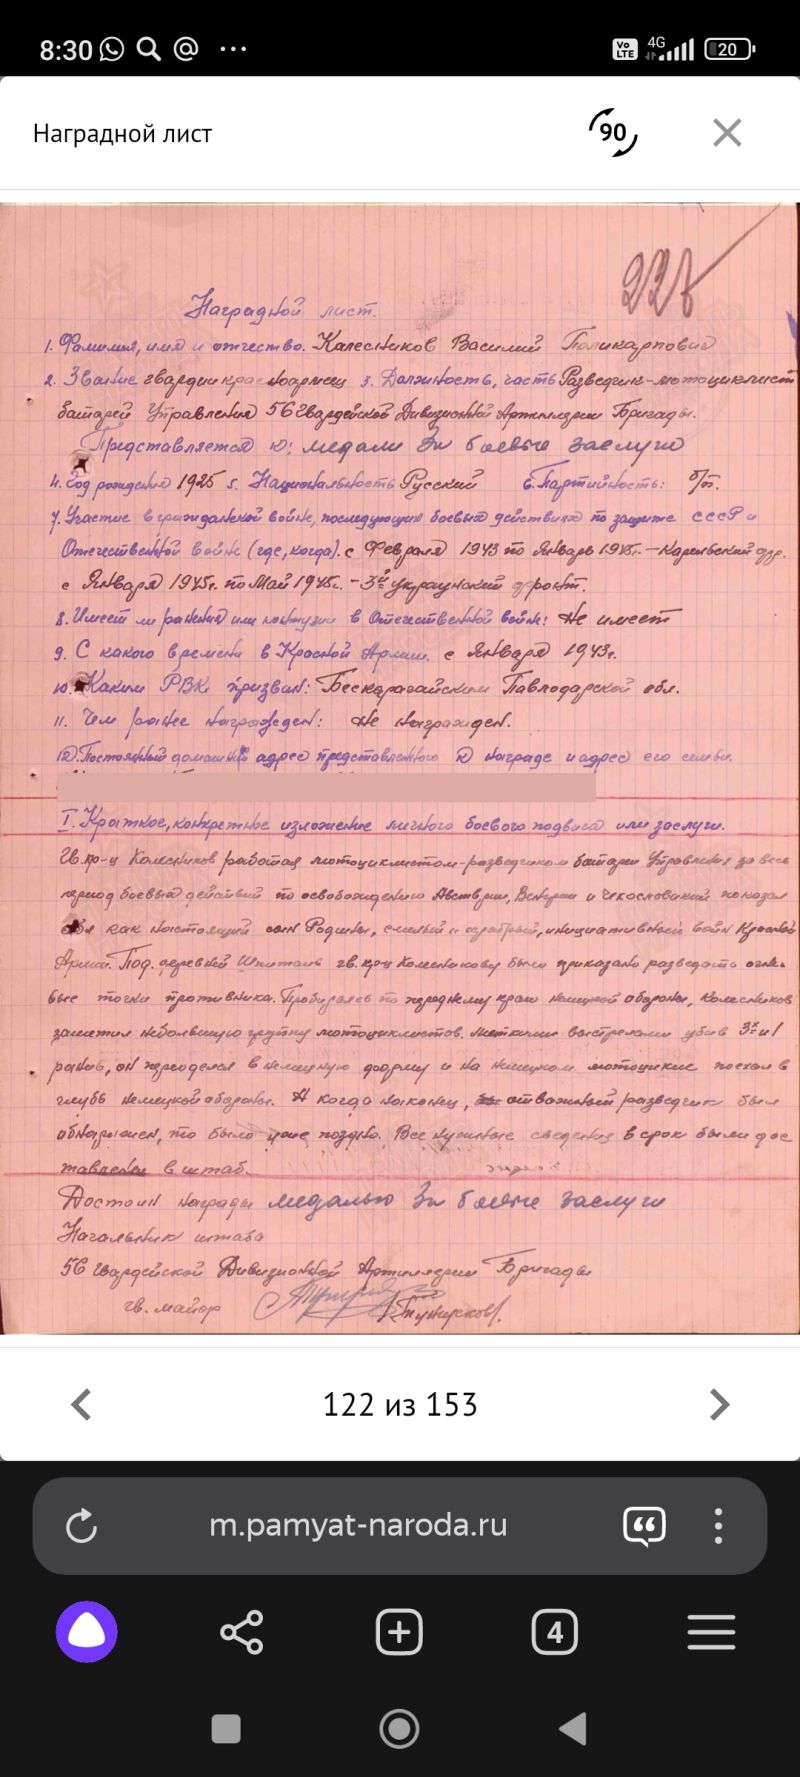 8:30
Vo LTE 4G 20
Наградной лист
90
228
Наградной лист.
1. Фамилия, имя и отчество. Калесников Василий Поликарпович
2. Звание гвардии красноармеец 3. Должность, часть Разведчик-мотоциклист
батареи Управления 56 Гвардейской Дивизионной Артиллерии Бригады.
Представляется к: медали За боевые заслуги
4. Год рождения 1925 5. Национальность Русский 6. Партийность: б/п.
7. Участие в гражданской войне, последующих боевых действиях по защите СССР и
Отечественной войне (где, когда). с Февраля 1943 по Январь 1945г. - Карельский фр.
с Января 1945г. по Май 1945г. - 3й украинский фронт.
8. Имеет ли ранения или контузии в Отечественной войне: Не имеет
9. С какого времени в Красной Армии. с Января 1943г.
10. Каким РВК призван: Бескарагайским Павлодарской обл.
11. Чем ранее награжден: Не награжден.
12. Постоянный домашний адрес представленного к награде и адрес его семьи.
I. Краткое, конкретное изложение личного боевого подвига или заслуги.
Гв. кр-ц Колесников работая мотоциклистом-разведчиком батареи Управления за весь
период боевых действий по освобождению Австрии, Венгрии и Чехословакии показал
себя как настоящий сын Родины, смелый и храбрый, инициативный воин Красной
Армии. Под деревней гв. кр-цу Колесникову было приказано разведать огне-
вые точки противника. Пробираясь по переднему краю немецкой обороны, Колесников
заметил небольшую группу мотоциклистов. Меткими выстрелами убив 3х и 1
ранив, он переоделся в немецкую форму и на немецком мотоцикле поехал в
глубь немецкой обороны. А когда наконец, отважный разведчик был
обнаружен, то было уже поздно. Все нужные сведения в срок были дос
тавлены в штаб.
Достоин награды медалью За боевые заслуги
Начальник штаба
56 гвардейской Дивизионной Артиллерии Бригады
гв. майор
122 из 153
m.pamyat-naroda.ru
4